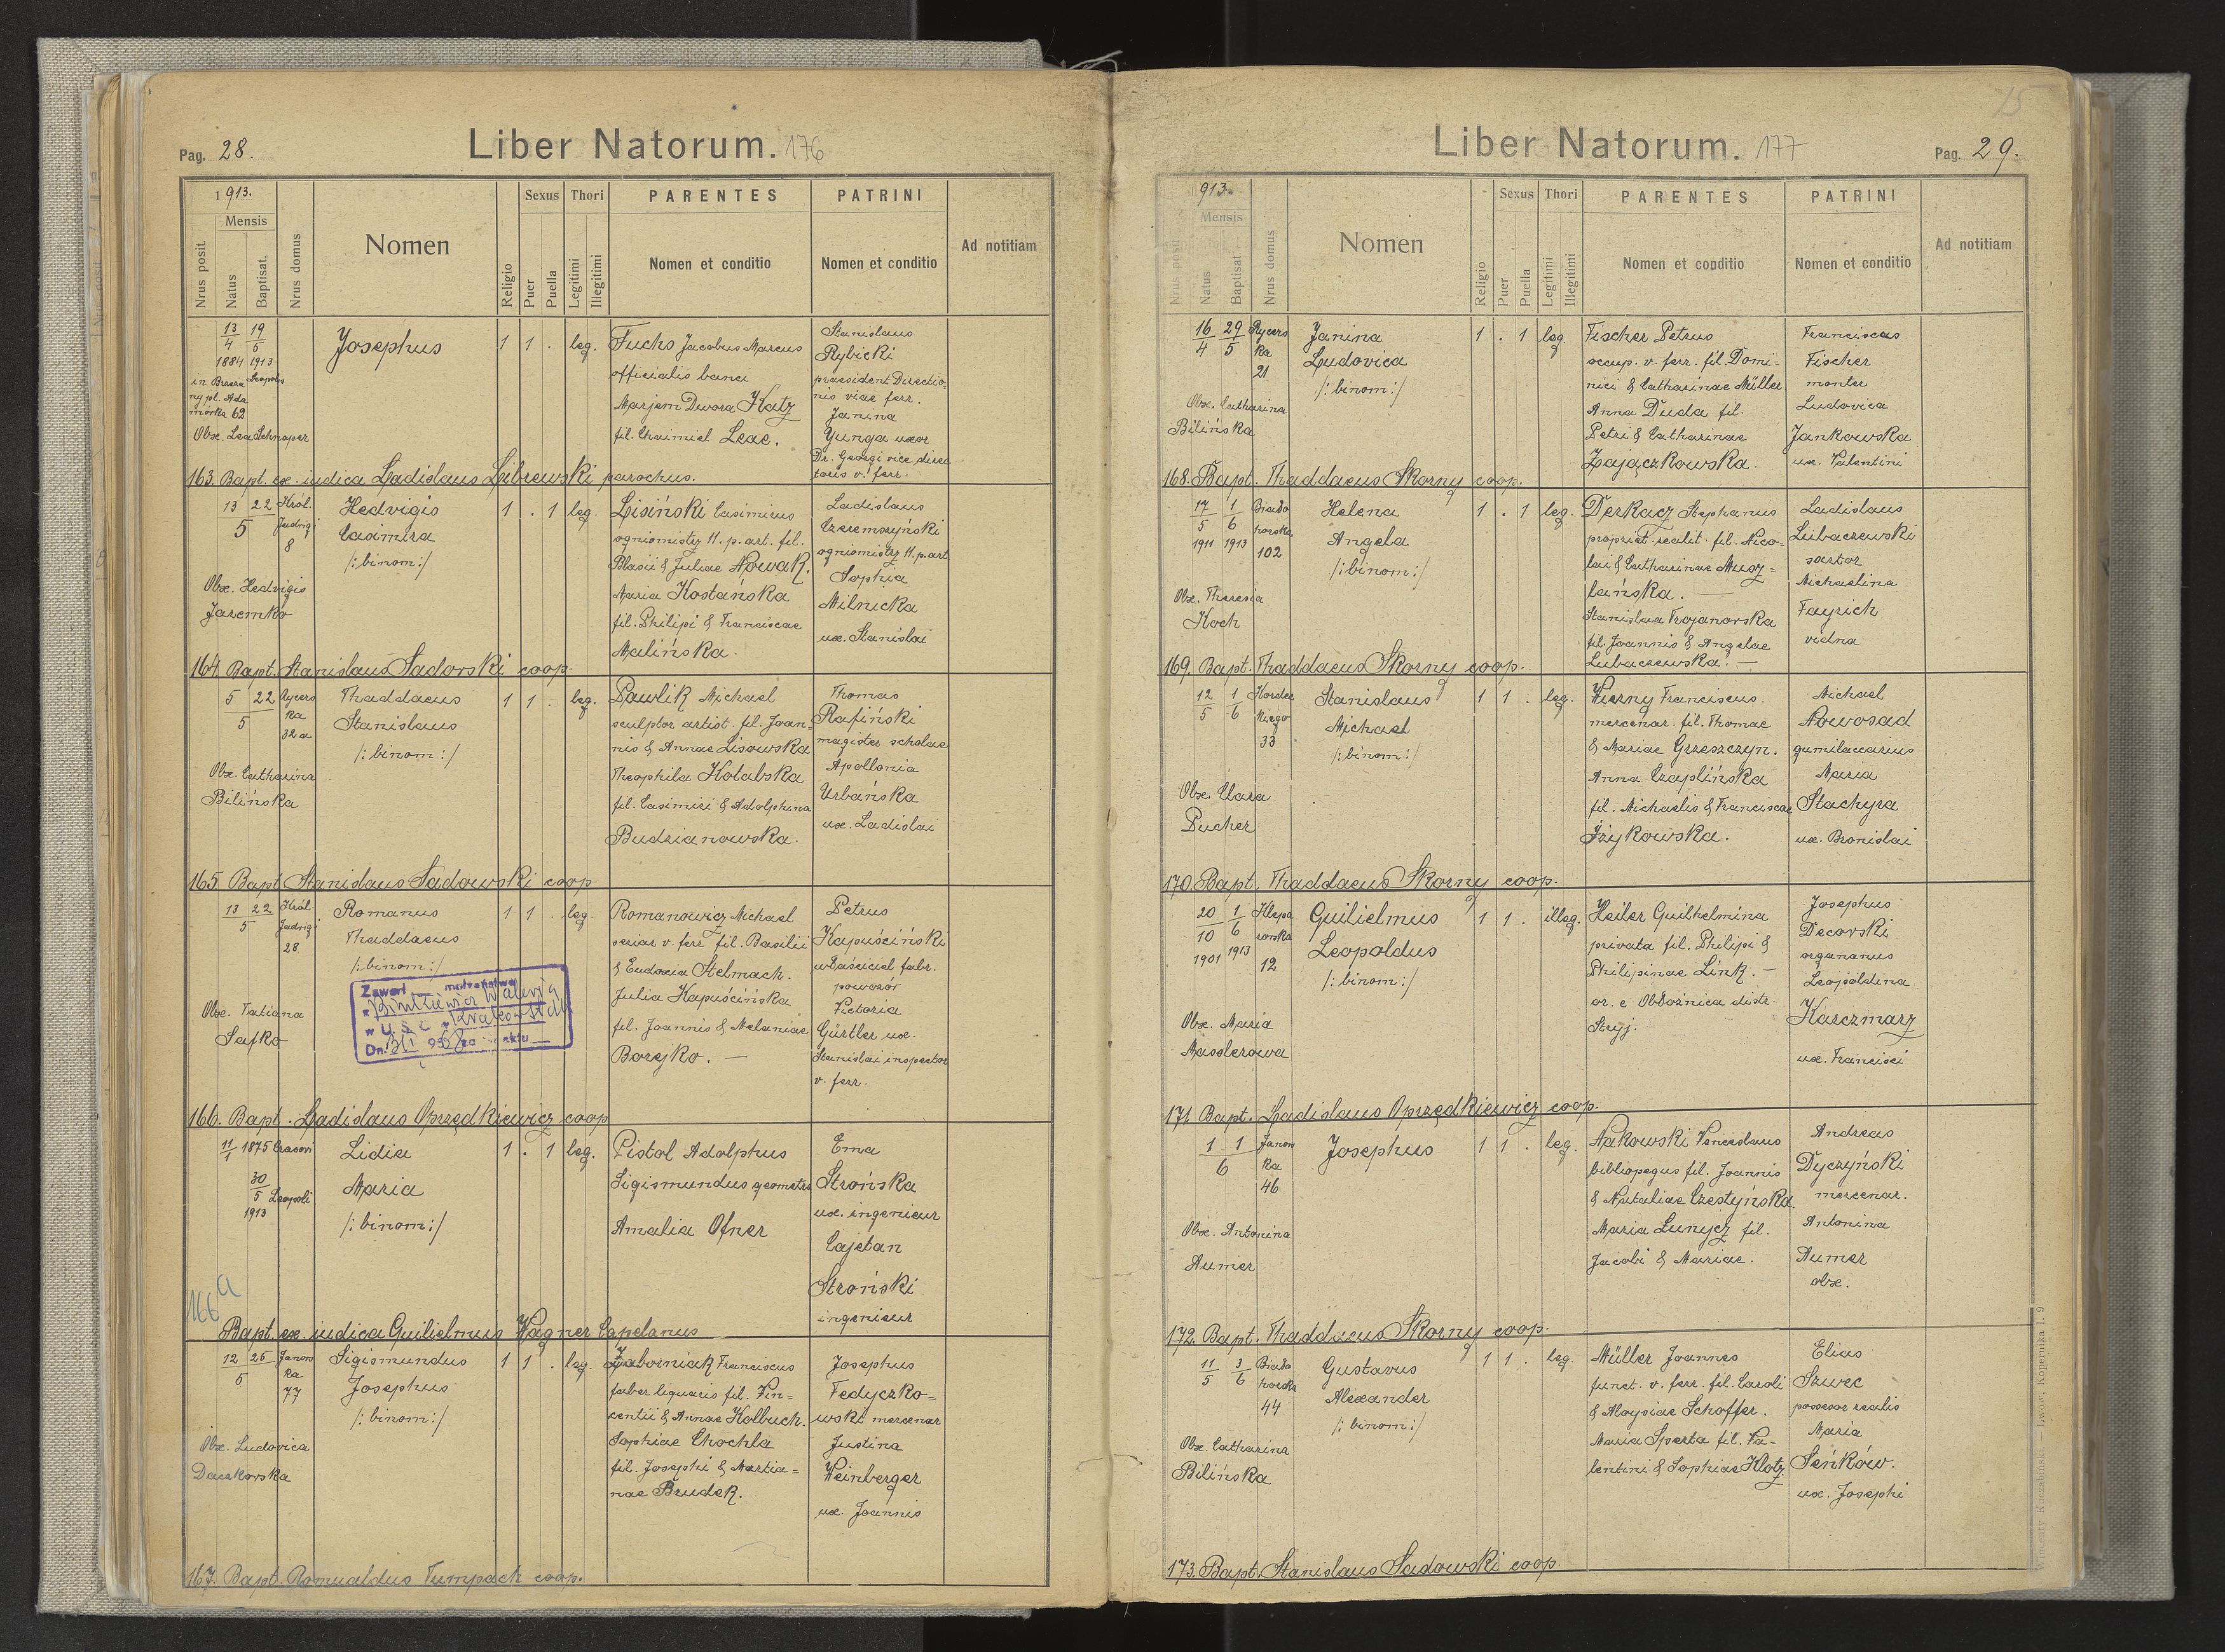 Pag. 28.
Liber Natorum. 176
1913.
Mensis
Nrus posit.
Natus
Baptisat.
Nrus domus
Nomen
Religio
Sexus
Puer
Puella
Thori
Legitimi
Illegitimi
PARENTES
Nomen et conditio
PATRINI
Nomen et conditio
Ad notitiam
13/4 1884 19/5 1913
Leopolis
in Brzeza
ny pl. Ada
morka 62
Obx. Lea Schnaper
Josephus
1 1 . leg.
Fuchs Jacobus Marcus
officialis banci
Marjem Dwora Katz
fil. Chaimiel Leae.
Stanislaus
Rybicki
praesident Directio-
nis viae ferr.
Janina
Yunga uxor
Dr. Georgi vice direc
toris v. ferr.
163. Bapt. ex. iudica Ladislaus Librewski parochus.
13 22 Król.
5 Jadwigi
8
Obx. Hedvigis
Jaremko
Hedvigis
Casimira
/:binom:/
1 . 1 leg.
Lisiński Casimirus
ogniomistrz 11. p. art. fil.
Blasii & Juliae Nowak.
Maria Kostańska
fil. Philipi & Franciscae
Malińska.
Ladislaus
Czeremszyński
ogniomistrz 11. p. art
Sophia
Milnicka
ux. Stanislai
164. Bapt. Stanislaus Sadowski coop.
5 22 Rycers
5 ka
32 a
Obx. Catharina
Bilińska
Thaddaeus
Stanislaus
/:binom:/
1 1 . leg.
Pawlik Michael
sculptor artist. fil. Joan-
nis & Annae Lisowska
Theophila Kotabska
fil. Casimiri & Adolphina
Budzianowska.
Thomas
Rafiński
magister scholae
Apollonia
Urbańska
ux. Ladislai
165. Bapt. Stanislaus Sadowski coop.
13 22 Król.
5 Jadwigi
28
Obx. Tatiana
Safko
Romanus
Thaddaeus
/:binom:/
1 1 . leg.
Romanowicz Michael
scriar v. ferr. fil. Basilii
& Eudoxia Stelmach.
Julia Kapuścińska
fil. Joannis & Melaniae
Borejko. —
Petrus
Kapuściński
właściciel fabr.
powozów
Victoria
Gürtler ux.
Stanislai inspector
v. ferr.
Zawarł małżeństwo
w U.S.C.
Dn. aktu
166. Bapt. Ladislaus Oprzędkiewicz coop
11/1 1875 Cracovi
30/5 1913 Leopoli
Lidia
Maria
/:binom:/
1 . 1 leg.
Pistol Adolphus
Sigismundus geometra
Amalia Ofner
Ema
Strońska
ux. ingenieur
Cajetan
Stroński
ingenieur
166a
Bapt. ex. iudica Guilielmus Wagner Capelanus
12 25 Janows
5 ka
77
Obx. Ludovica
Daczkowska
Sigismundus
Josephus
/:binom:/
1 1 . leg.
Zaborniak Franciscus
faber liquaris fil. Vin-
centii & Annae Kolbuch.
Sophiae Chochla
fil. Josephi & Martia-
nae Bruder.
Josephus
Fedyczko-
wski mercenar
Justina
Weinberger
ux. Joannis
167. Bapt. Romualdus Tumpach coop.
Liber Natorum. 177
Pag. 29.
1913.
Mensis
Nrus posit.
Natus
Baptisat
Nrus domus
Nomen
Religio
Sexus
Puer
Puella
Thori
Legitimi
Illegitimi
PARENTES
Nomen et conditio
PATRINI
Nomen et conditio
Ad notitiam
16/4 29/5 Rycers
ka
21
Obx. Catharina
Bilińska
Janina
Ludovica
/:binom:/
1 . 1 leg
Fischer Petrus
occup. v. ferr. fil. Domi-
nici & Catharinae Müller
Anna Duda fil.
Petri & Catharinae
Zajączkowska.
Franciscus
Fischer
monter
Ludovica
Jankowska
ux. Valentini
168. Bapt. Thaddaeus Skorny coop.
17/5 1911 1/6 1913 Biało
horska
102
Obx. Theresia
Koch
Helena
Angela
/:binom:/
1 . 1 leg.
Derkacz Stephanus
propriet. realit. fil. Nico-
lai & Catharinae Musz-
lańska. —
Stanislaa Trojanowska
fil. Joannis & Angelae
Lubaczewska. —
Ladislaus
Lubaczewski
sartor
Michaelina
Fayrich
vidna
169. Bapt. Thaddaeus Skorny coop.
12/5 1/6 Kordec
kiego
33
Obx. Clara
Pucher
Stanislaus
Michael
/:binom:/
1 1 . leg.
Wierny Franciscus
mercenar. fil. Thomae
& Mariae Grzeszczyn.
Anna Czaplińska
fil. Michaelis & Franciscae
Iżykowska.
Michael
Nowosad
gumilaccarius
Maria
Stachyra
ux. Bronislai
170. Bapt. Thaddaeus Skorny coop.
20/10 1901 1/6 1913 Klepa
rowska
12
Obx. Maria
Masslerowa
Guilielmus
Leopoldus
/:binom:/
1 1 . illeg.
Heiler Guilhelmina
privata fil. Philipi &
Philipinae Link. —
or. e Obłaźnica distr.
Stryj.
Josephus
Decowski
organanus
Leopoldina
Karczmarz
ux. Francisci
171. Bapt. Ladislaus Oprzędkiewicz coop.
1 1 Janows
6 ka
46
Obx. Antonina
Aumer
Josephus
1 1 . leg.
Makowski Venceslaus
bibliopegus fil. Joannis
& Nataliae Czestyńska.
Maria Łunycz fil.
Jacobi & Mariae.
Andreas
Dyczyński
mercenar.
Antonina
Aumer
obx.
172. Bapt. Thaddaeus Skorny coop.
11/5 3/6 Biało
horska
44
Obx. Catharina
Bilińska
Gustavus
Alexander
/:binom:/
1 1 . leg.
Müller Joannes
funct. v. ferr. fil. Caroli
& Aloysiae Schoffer.
Maria Sperta fil. Va-
lentini & Sophiae Klotz
Elias
Szwec
possesor realis
Maria
Seńków.
ux. Josephi
173. Bapt. Stanislaus Sadowski coop.